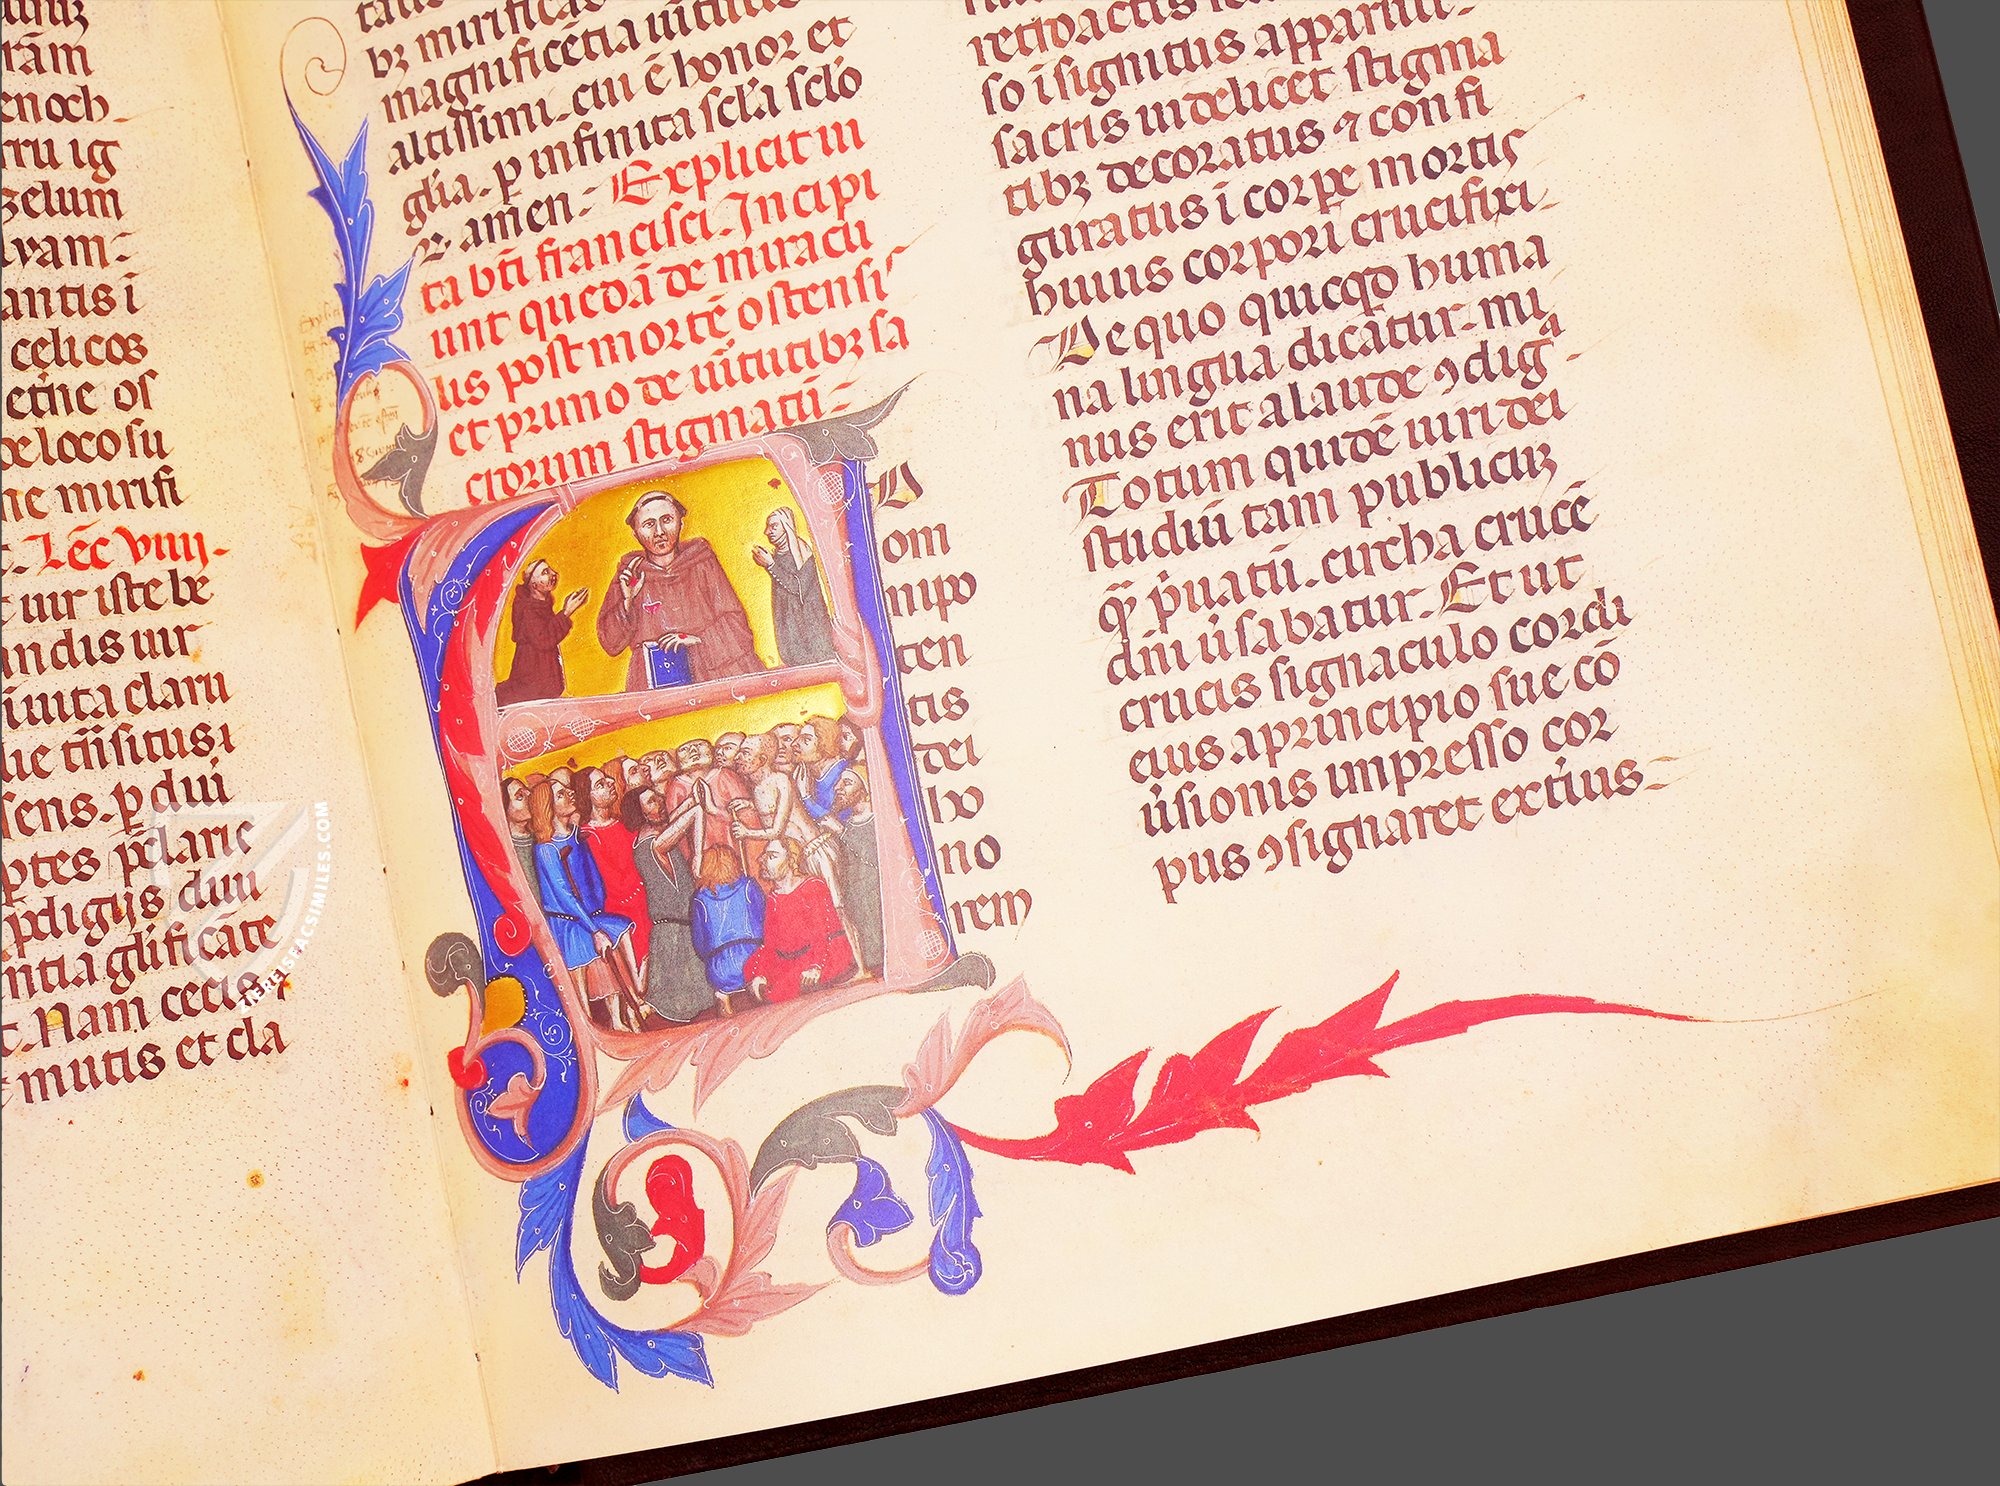 rām
enoch.
rru ig
zelum
ivam-
antis ī
celicos
etīne os
de loco su
ne mirifi
Lēc viiii-
uir iste be
andis uir
īuita clarıı
ue tn̄situs ı
sens. ꝑ diui
ptes pclaris
ꝓdigijs diui
ntia glīficāte
c. Nam cecis,
mutis et cla
bꝫ mirificas
magnificētia uirtutū
altissimi. cui ē honor et
glīa. ꝑ infinita scl̄a scl̄o
ꝝ amen. Explicit ui
ta bt̄i francisci. Incipi
unt quedā de miracu
lis post mortē ostensis
et primo de uirtutibꝫ sa
crorum stigmatū-
Ad
om
nipo
ten
tis
dei
ho
no
rem
retroactis
so īsignitus apparuit.
sacris uidelicet stigma
tibꝫ decoratus ⁊ confi
guratus ī corpe mortis
huius corpori crucifixi.
De quo quicqd huma
na lingua dicātur. mi
nus erit a laude ꝯdigª.
Totum quidē uiri dei
studiū tam publicuꝫ
qͣ pͥuatū. circha crucē
dn̄i ūsabatur. Et ut
crucis signaculo cordi
eius a principio sue cō
ūsionis impresso cor
pus ꝯsignaret extius.
ZIERELSFACSIMILES.COM